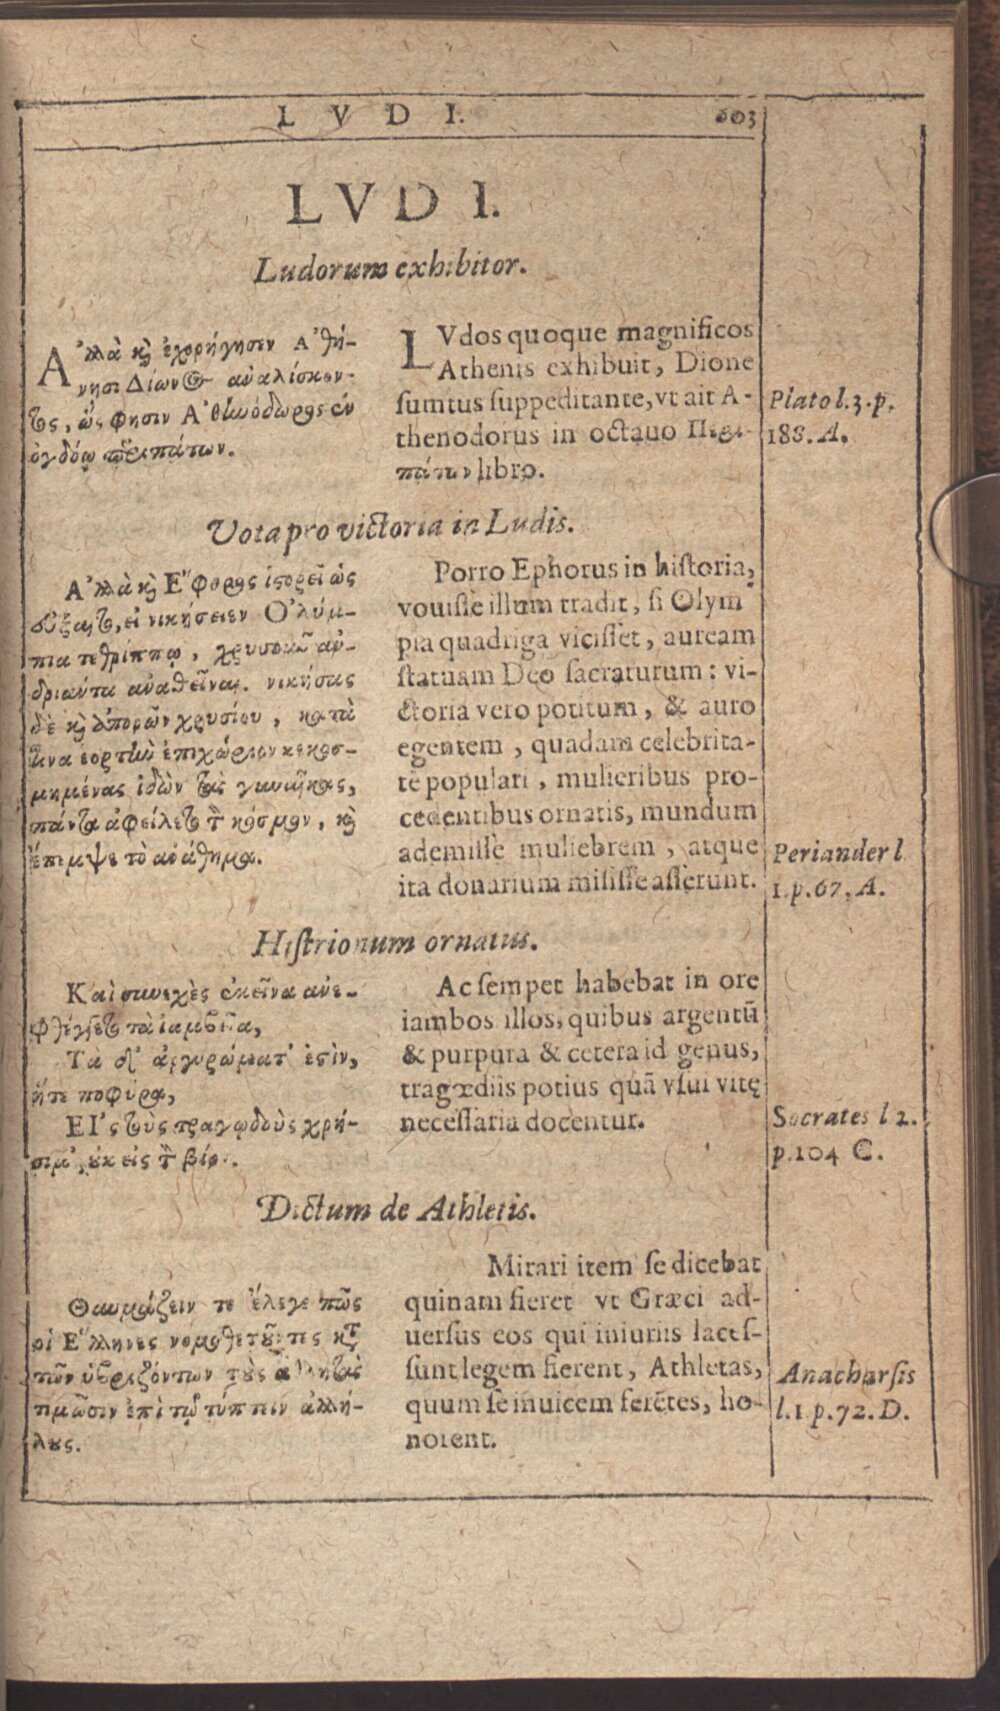 LVDI. 603
LVDI.
Ludorum exhibitor.
Ἀλλὰ καὶ ἐχορήγησεν Ἀθή-
νησι Δίωνος ἀναλίσκον-
τος, ὥς φησιν Ἀθηνόδωρος ἐν
ὀγδόῳ περιπάτων.
LVdos quoque magnificos
Athenis exhibuit, Dione
sumtus suppeditante, vt ait A-
thenodorus in octauo Περι-
πάτων libro.
Plato l. 3. p.
188. A.
Vota pro victoria in Ludis.
Ἀλλὰ καὶ Ἔφορος ἱστορεῖ ὡς
εὔξαιτο, εἰ νικήσειεν Ὀλύμ-
πια τεθρίππῳ, χρυσοῦν ἀν-
δριάντα ἀναθεῖναι. νικήσας
δὲ καὶ ἀπορῶν χρυσίου, κατὰ
τινα ἑορτὴν ἐπιχώριον κεκοσ-
μημένας ἰδὼν τὰς γυναῖκας,
πάντα ἀφείλετο τὸν κόσμον, καὶ
ἔπεμψε τὸ ἀνάθημα.
Porro Ephorus in historia,
vouisse illum tradit, si Olym
pia quadriga vicisset, auream
statuam Deo sacraturum: vi-
ctoria vero potitum, & auro
egentem, quadam celebrita-
te populari, mulieribus pro-
cedentibus ornatis, mundum
ademisse muliebrem, atque
ita donarium misisse asserunt.
Periander l
1. p. 67. A.
Histrionum ornatus.
Καὶ συνεχὲς ἐκεῖνα ἀνε-
φθέγγετο τὰ ἰαμβεῖα,
Τὰ δ' ἀργυρώματ' ἐστὶν,
ἥτε ποφύρα,
ΕἸς τοὺς τραγῳδοὺς χρή-
σιμ', οὐκ εἰς τὸν βίον.
Ac semper habebat in ore
iambos illos, quibus argentū
& purpura & cetera id genus,
tragœdiis potius quā vsui vitę
necessaria docentur.
Socrates l 2.
p. 104 C.
Dictum de Athletis.
Θαυμάζειν τε ἔλεγε πῶς
οἱ Ἕλληνες νομοθετοῦντες κατὰ
τῶν ὑβριζόντων τοὺς ἀθλητὰς
τιμῶσιν ἐπὶ τῷ τύπτειν ἀλλή-
λους.
Mirari item se dicebat
quinam fieret vt Græci ad-
uersus eos qui iniuriis laces-
sunt legem fierent, Athletas,
quum se inuicem ferētes, ho-
norent.
Anacharsis
l. 1 p. 72. D.